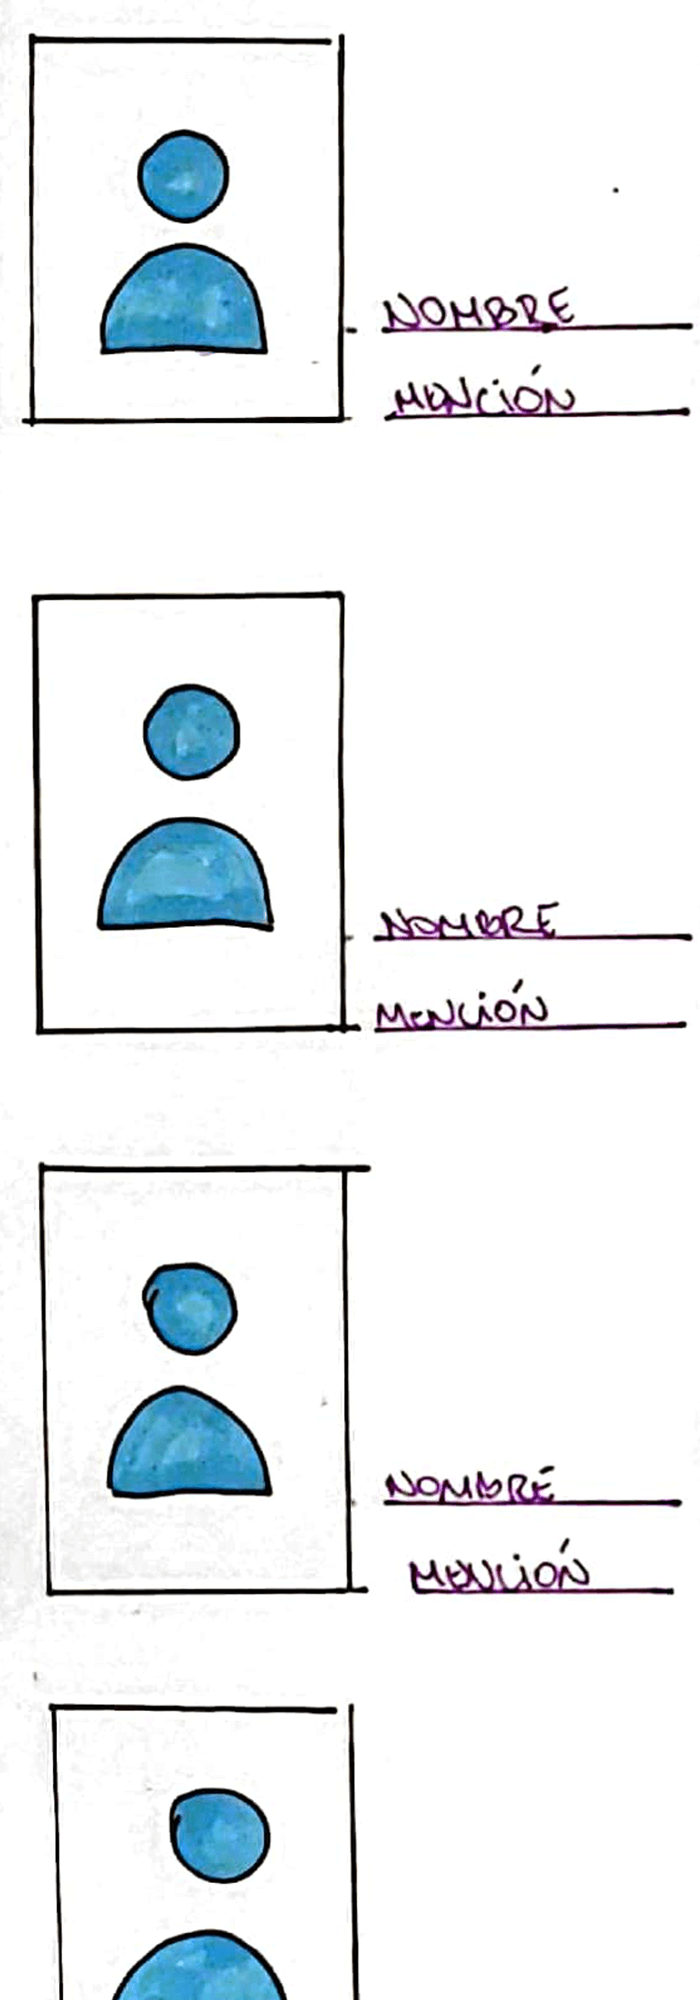 NOMBRE
MENCIÓN
NOMBRE
MENCIÓN
NOMBRE
MENCIÓN